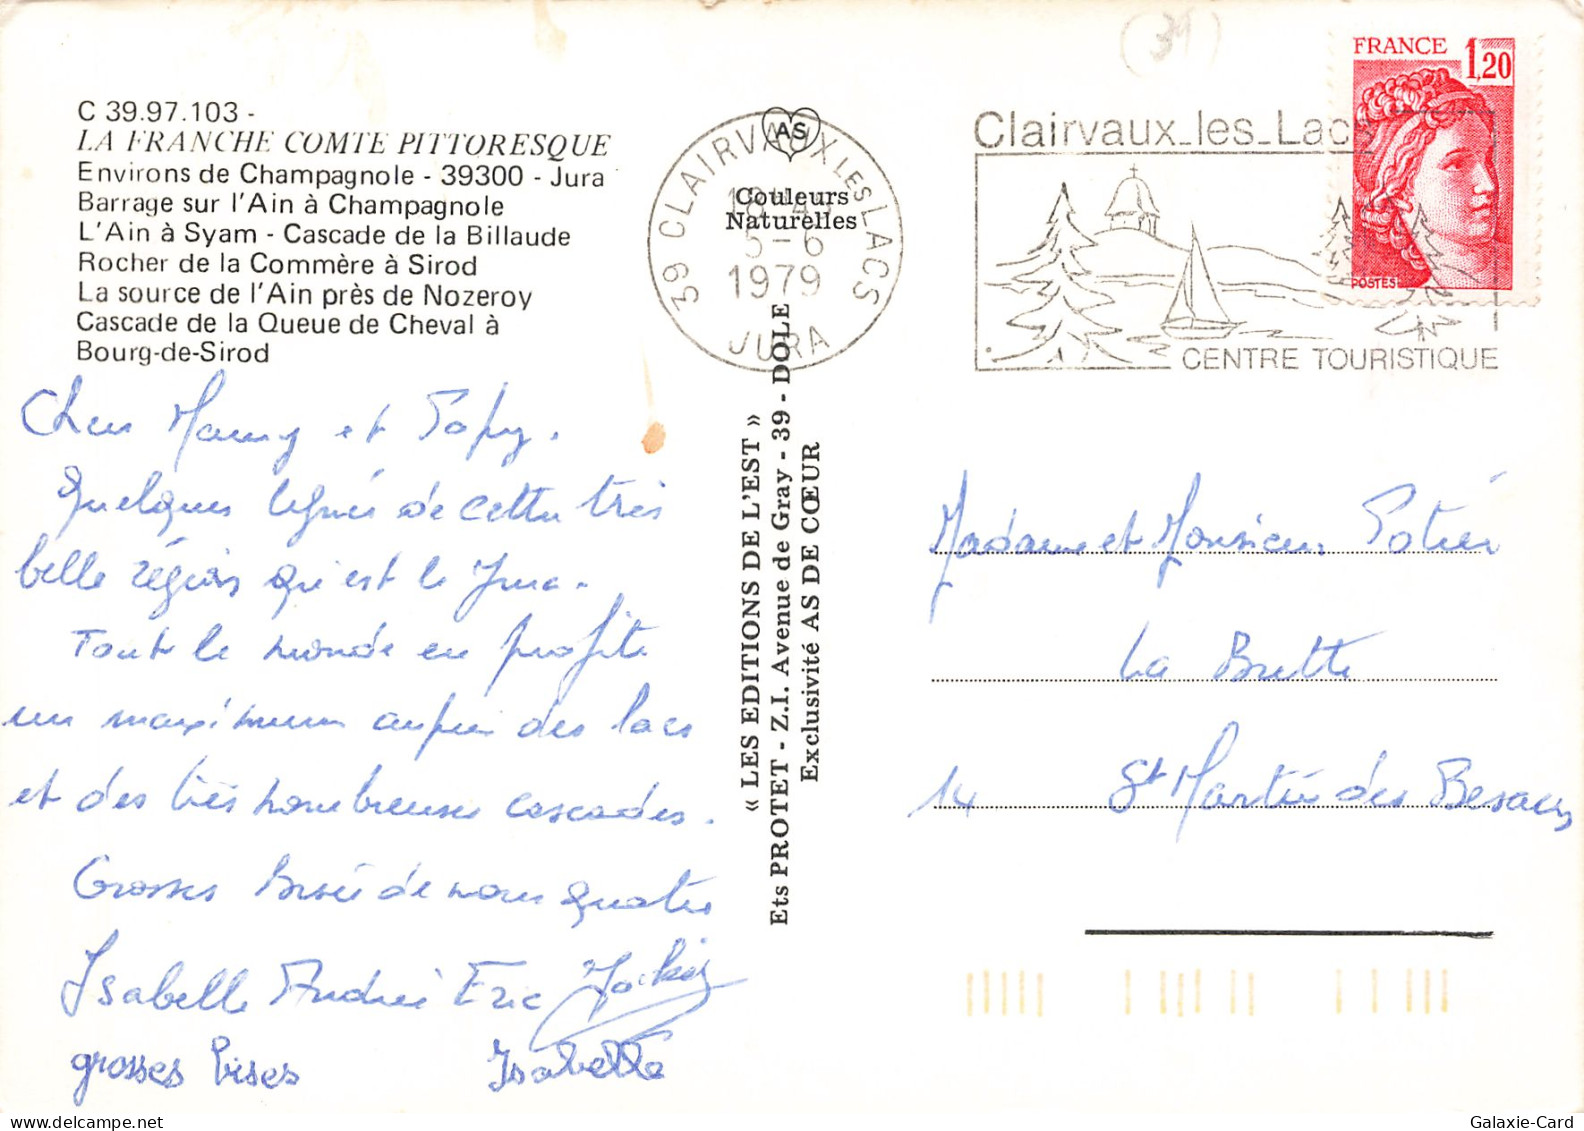 C 39.97.103 -
LA FRANCHE COMTE PITTORESQUE
Environs de Champagnole - 39300 - Jura
Barrage sur l'Ain à Champagnole
L'Ain à Syam - Cascade de la Billaude
Rocher de la Commère à Sirod
La source de l'Ain près de Nozeroy
Cascade de la Queue de Cheval à
Bourg-de-Sirod
Chers Mamy et Papy.
Quelques lignes de cette très
belle région qu'est le Jura.
Tout le monde en profite
un maximum auprès des lacs
et des très nombreuses cascades.
Grosses bises de nous quatre
Isabelle André Eric
grosses bises Isabelle
AS
Couleurs
Naturelles
39 CLAIRVAUX LES LACS
5-6
1979
JURA
« LES EDITIONS DE L'EST »
Ets PROTET - Z.I. Avenue de Gray - 39 - DOLE
Exclusivité AS DE CŒUR
(39)
FRANCE 1,20
POSTES
Clairvaux_les_Lacs
CENTRE TOURISTIQUE
Madame et Monsieur Potier
La Butte
14 St Martin des Besaces
Galaxie-Card